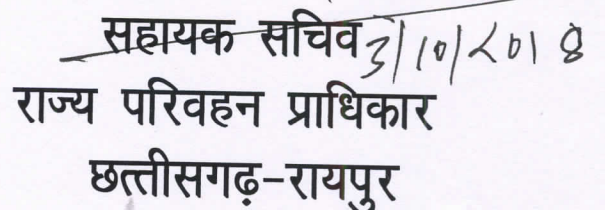 सहायक सचिव 3/10/2018
राज्य परिवहन प्राधिकार
छत्तीसगढ़-रायपुर